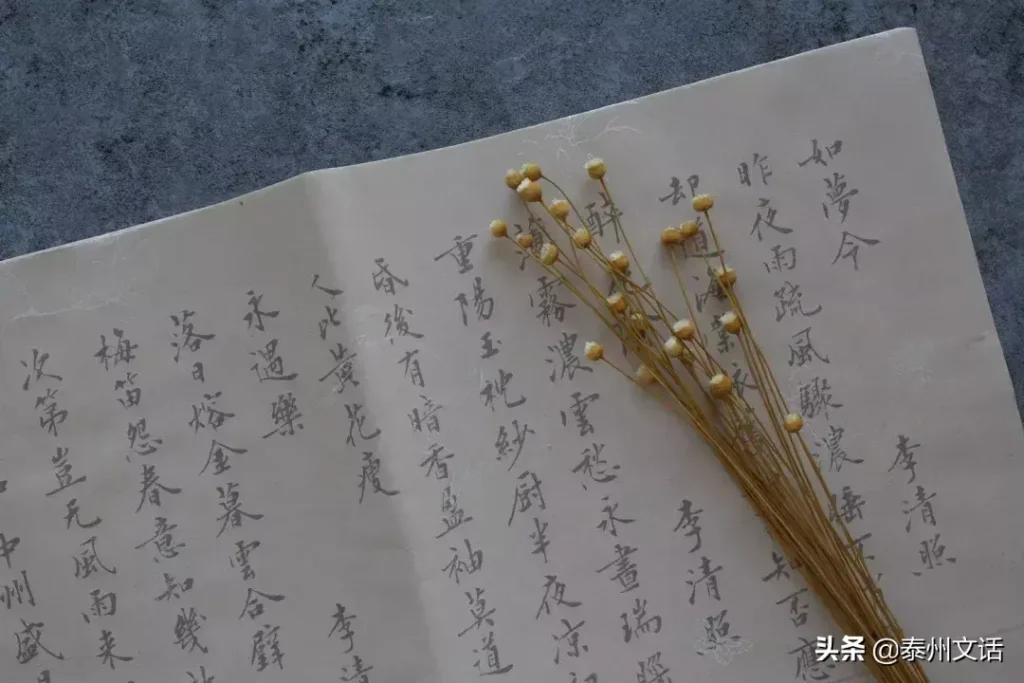 如夢令 李清照
昨夜雨疏風驟濃睡不
却道海棠依舊知否應
醉花 李清照
霧濃雲愁永晝瑞腦
重陽玉枕紗厨半夜凉初
昏後有暗香盈袖莫道
人比黄花瘦
永遇樂 李清
落日熔金暮雲合璧
梅笛怨春意知幾
次第豈无風雨来
中州盛日
头条 @泰州文话